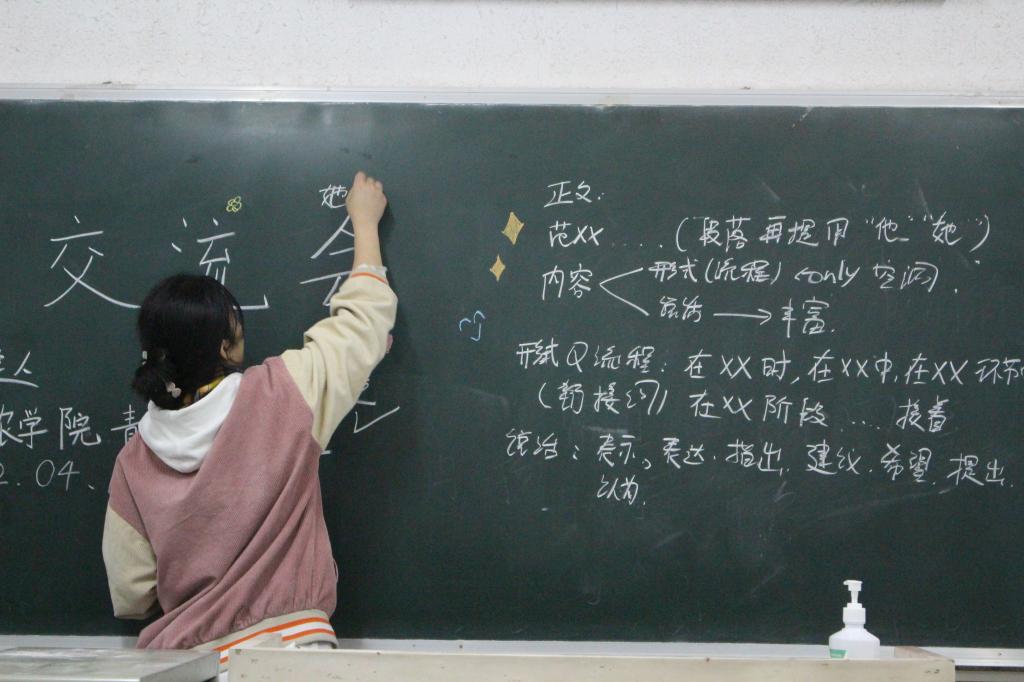 她
交流会
学院 青
2.04.
正文:
范XX ..... (段落再提用"他""她")
内容 形式(流程) only 空洞.
总结 → 丰富.
形式Q流程: 在XX时, 在XX中, 在XX环节
(勤接续) 在XX阶段 ..... 接着
总结: 表示, 表达. 指出. 建议. 希望. 提出.
认为.